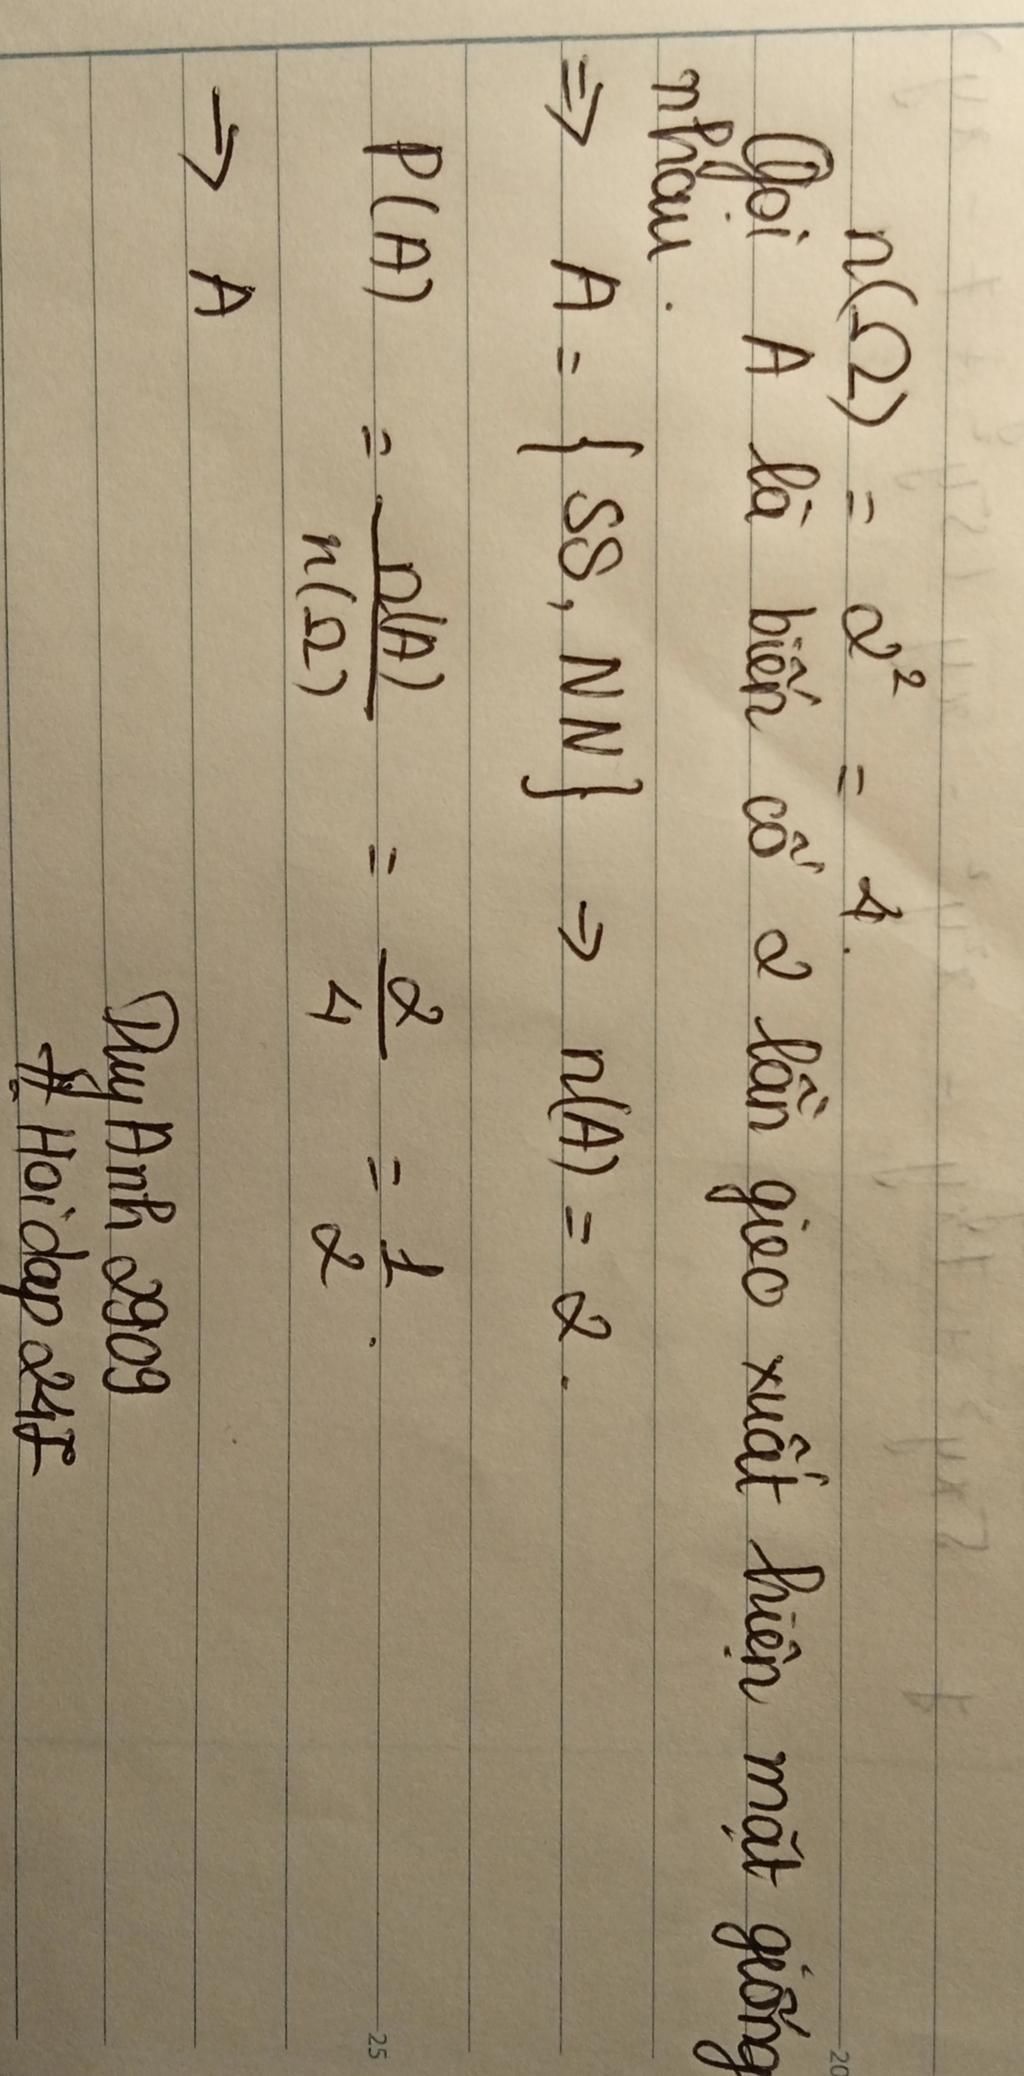 n(Ω) = 2² = 4.
Gọi A là biến cố 2 lần gieo xuất hiện mặt giống
nhau.
=> A = { SS, NN} => n(A) = 2.
P(A) = n(A)/n(Ω) = 2/4 = 1/2.
→ A
Duy Anh 2909
# Hoidap247
20
25